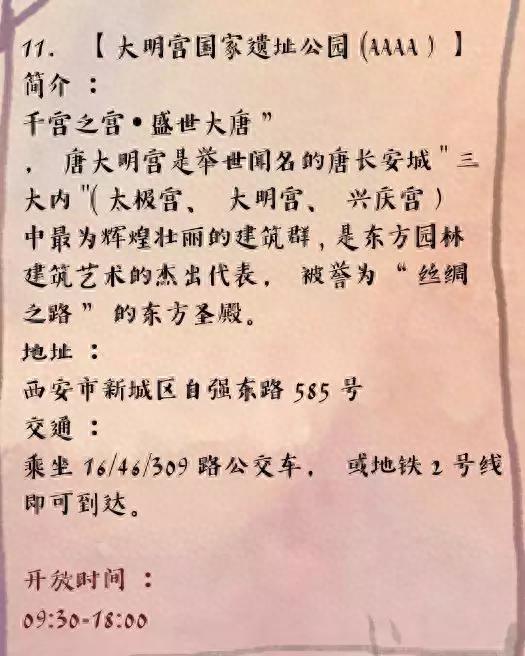 11. 【大明宫国家遗址公园(AAAA)】
简介：
千宫之宫•盛世大唐”
，唐大明宫是举世闻名的唐长安城"三
大内"(太极宫、大明宫、兴庆宫)
中最为辉煌壮丽的建筑群,是东方园林
建筑艺术的杰出代表，被誉为“丝绸
之路”的东方圣殿。
地址：
西安市新城区自强东路 585 号
交通：
乘坐 16/46/309 路公交车，或地铁 2 号线
即可到达。
开放时间：
09:30-18:00